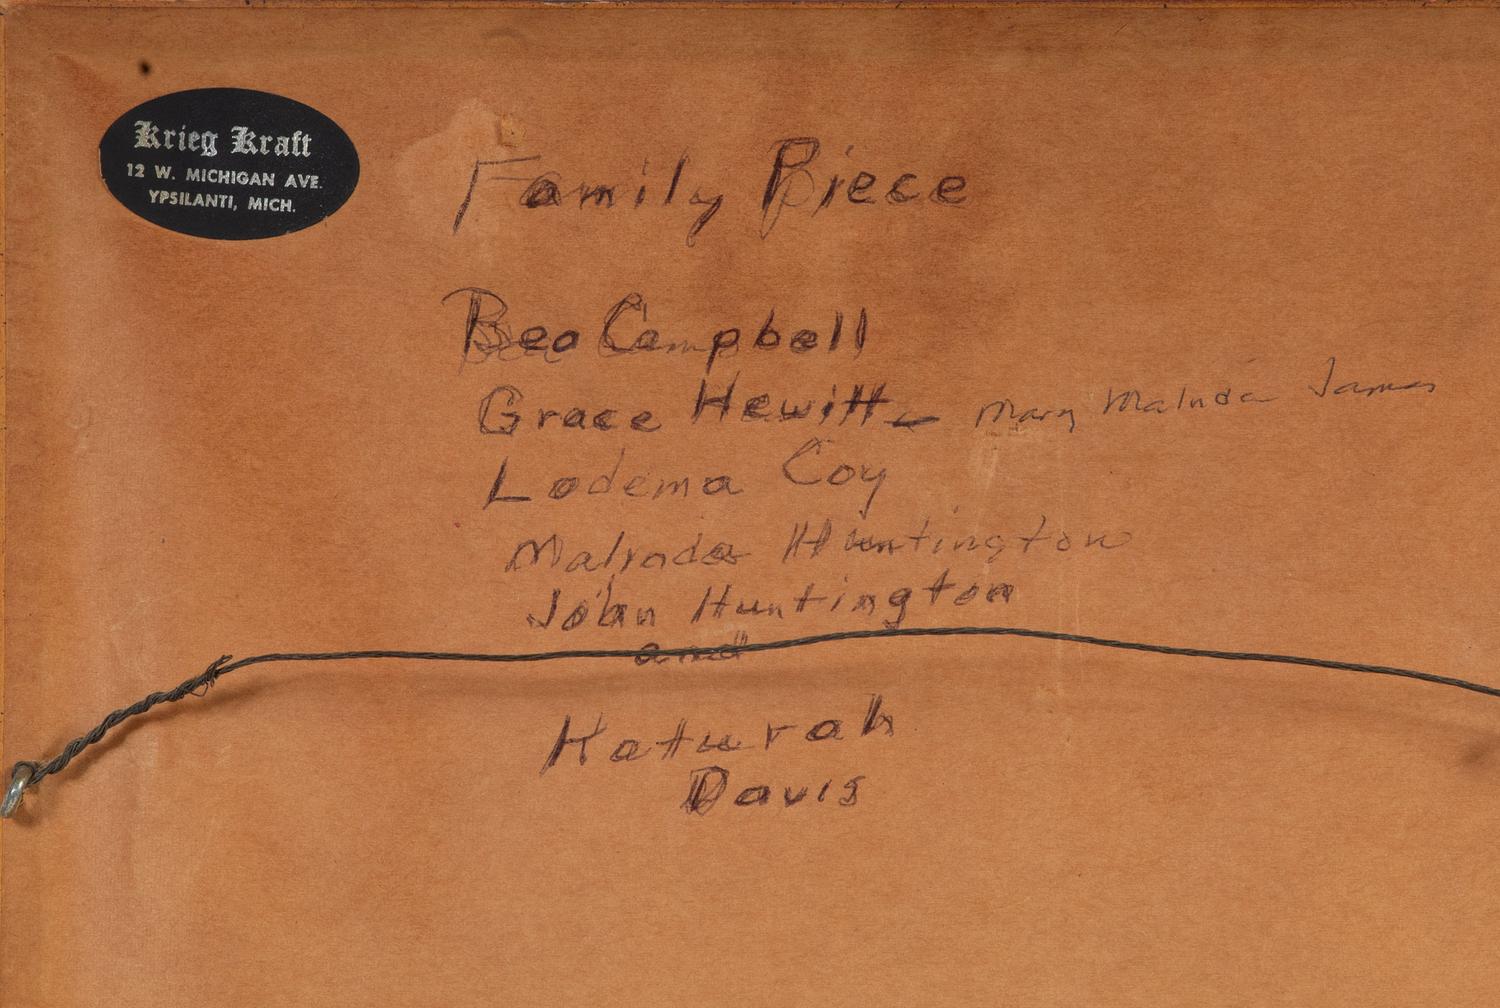 Krieg Kraft
12 W. MICHIGAN AVE.
YPSILANTI, MICH.
Family Piece
Bea Campbell
Grace Hewitt - Mary Malinda James
Lodema Coy
Malinda Huntington
John Huntington
and
Katurah
Davis